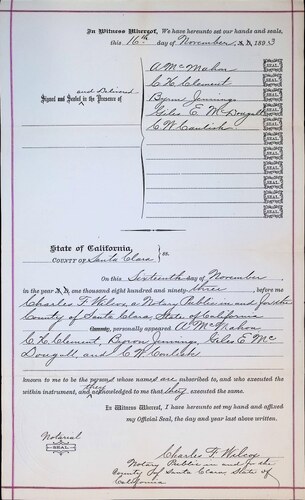 In Witness Whereof, We have hereunto set our hands and seals,
this 16th day of November A.D. 1893
A McMahon SEAL
C. H. Clement SEAL
Signed and Sealed and Delivered in the Presence of
Byron Jennings SEAL
Giles E. McDougall SEAL
C W SEAL
SEAL
SEAL
SEAL
SEAL
SEAL
State of California,
COUNTY OF Santa Clara } ss.
On this Sixteenth day of November
in the year A.D. one thousand eight hundred and ninety-three, before me
Charles F. Wilcox, a Notary Public in and for the
County of Santa Clara, State of California
personally appeared A. McMahon
C. H. Clement, Byron Jennings, Giles E. Mc
Dougall and C. W.
known to me to be the persons whose names are subscribed to, and who executed the
within instrument, and they acknowledged to me that they executed the same.
In Witness Whereof, I have hereunto set my hand and affixed
my Official Seal, the day and year last above written.
Notarial
SEAL
Charles F. Wilcox
Notary Public in and for the
County of Santa Clara, State of
California